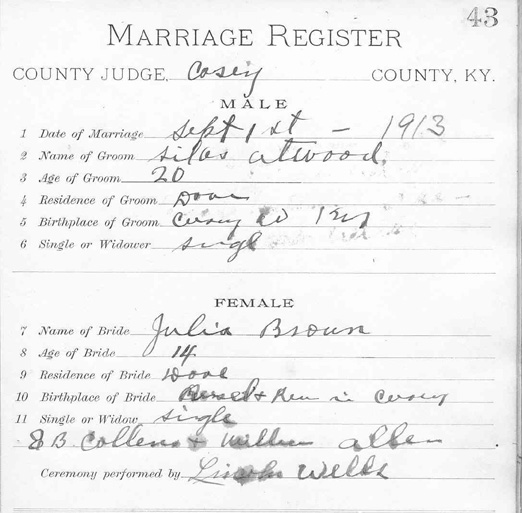 43
MARRIAGE REGISTER
COUNTY JUDGE, Casey COUNTY, KY.
MALE
1 Date of Marriage Sept 1st - 1913
2 Name of Groom Silas Atwood
3 Age of Groom 20
4 Residence of Groom
5 Birthplace of Groom Casey Co Ky
6 Single or Widower Singl
FEMALE
7 Name of Bride Julia Brown
8 Age of Bride 14
9 Residence of Bride
10 Birthplace of Bride in Casey
11 Single or Widow Single
Allen
Ceremony performed by Lincoln Wells